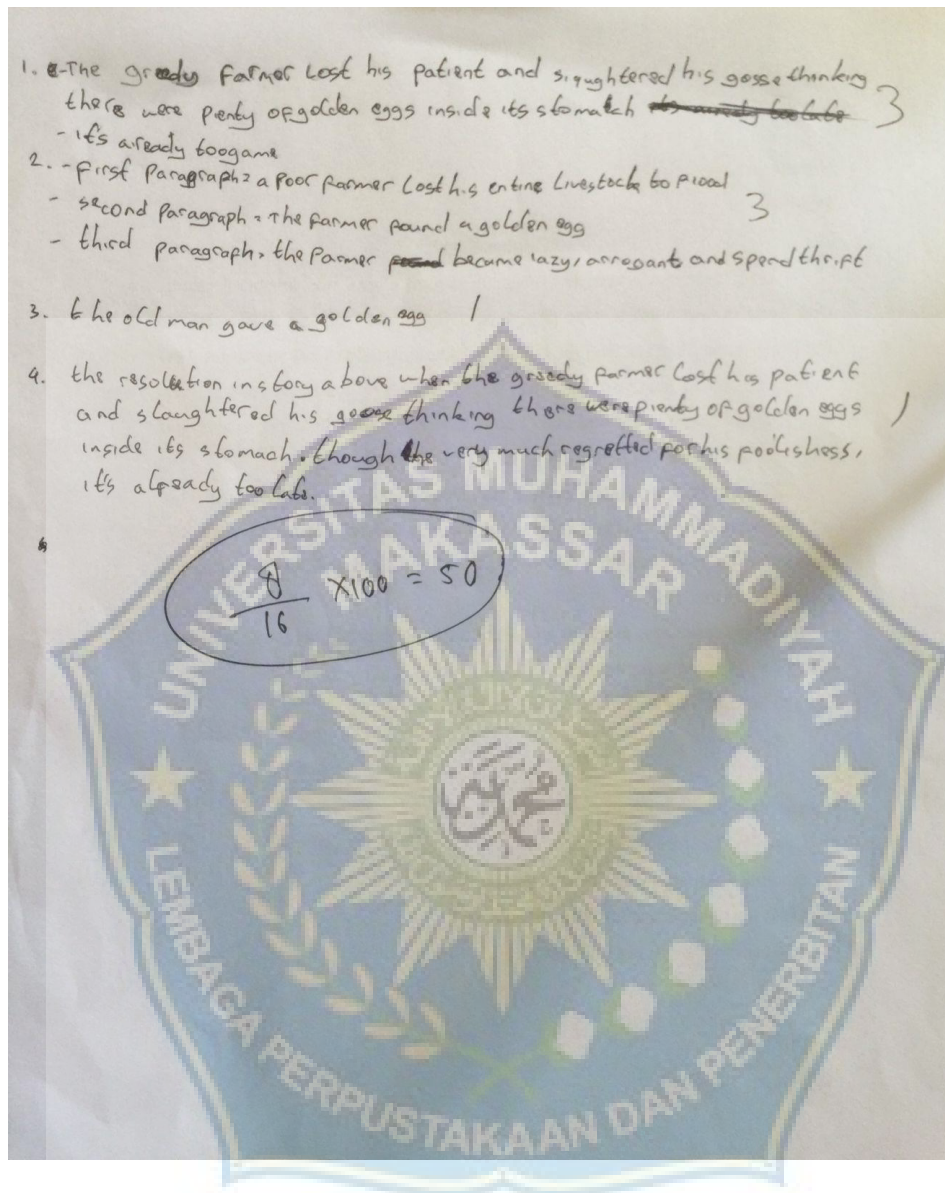 1. The greedy farmer lost his patient and slaughtered his gosse thinking
there were plenty of golden eggs inside its stomatch 3
- it's already toogame
2. - First Paragraph = a poor farmer lost his entine Livestock to flood
- second Paragraph = The farmer found a golden egg 3
- third paragraph, the farmer became lazy, arrogant and spend thrift
3. the old man gave a golden egg 1
4. the resolution in story above when the greedy farmer lost his patient
and slaughtered his goose thinking there were plenty of golden eggs 1
inside its stomach. though he very much regretted for his foolishess,
it's already too late.
8
16
X100 = 50
UNIVERSITAS MUHAMMADIYAH
MAKASSAR
محمد
LEMBAGA PERPUSTAKAAN DAN PENERBITAN